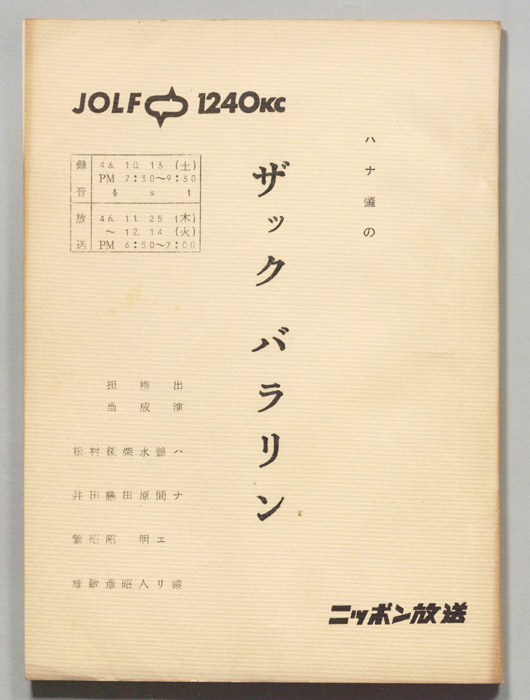 JOLF 1240KC
ハナ肇の
ザック バラリン
録音 46. 11. 13 (土)
PM 7:30〜9:30
4 s t
放送 46. 11. 25 (木)
〜 12. 14 (火)
PM 6:50〜7:00
出演 ハナ 肇
エリ
構成 水原明人
柴田 昭
担当 後藤昭彦
村田昭敏
松井繁雄
ニッポン放送